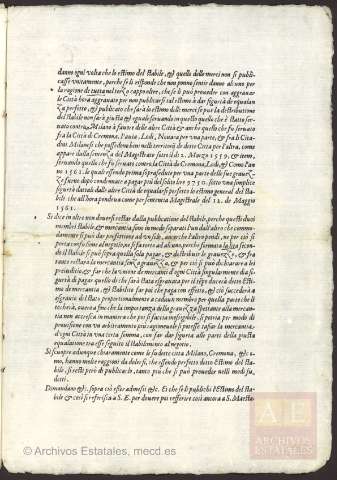 danno ogni volta che lo estimo del stabile, & quello delle merci non si publi-
casse unitamente, perche se li risponde che non ponno sentir danno alcuno per
la ragione di tutta nel terzo cappo oltre, che se li può proueder con aggrauar
le Città hora aggrauate per non publicarsi tal estimo à dar sigurtà de equalan
za perfetto, & publicato che sarà lo estimo delle merci se pur la distributione
del stabile non sarà giusta & eguale seruando in questo quello che è stato ser
uato contra Milano à fauore delle altre Città & anche quello che fu seruato
frà la Città di Cremona, Pauia, Lodi, Nouara per una parte, & frà li Citta
dini Milanesi che possedeuano beni nel territorio de dette Città per l'altra, come
appare dalla sentenza del Magistrato sutto il di 2. Marzo 1559. & item,
seruando quello che fu seruato contra la Città di Cremona, Lodi, & Como l'an
no 1561. la quale essendo prima soprasedute per una parte delle sue grauez-
ze furno dippo condennate a pagar più del solito lire 9750. sotto una simplice
sigurtà dattali dalle altre Città de equalarsi perfetto lo estimo general del sta
bile. ilche all'hora pendeua come per sentenza Magistrale del 12. de Maggio
1561.
Si dice in oltre non douersi restar dalla publicatione del stabile, perche questi duoi
membri stabile & mercantia sono in modo separati l'un dall'altro che commo-
damente si può dar perfettione ad un solo, ancor che l'altro pendi, ne per ciò si
porta confusione al negotio, ò si fa torto ad alcuno, perche formato la lira secon-
do il stabile si può sopra quella sola pagar, & destribuir le grauezze, & frà
tanto restarà la mercantia senza grauezza, & per ciò si può dechiarare à bō
preiudicio, & far che la unione de mercanti d'ogni Città singularmente dia si
gurtà de pagar quello che sarà stata essonerata per il tēpo decorso detto Esti-
mo de mercantia, & stabilito sia poi che paga con effetto, & ciò succedeà a
esgrauio del stato proportionalmente a caduun membro per quella parte che li
toccherà, ouero a fine che la importanza della grauezza spettante alla mercan-
tia non accresca in maniera che poi si faccia inessigibile, si potria per modo di
prouisione con un arbitramento più ragioneuole si potesse tassar la mercantia
d'ogni Città in una certa somma, con far dar sigurtà alle parti della giusta
equalanza tra esse seguito il stabilimento al negotio.
Si scuopre adunque chiaramente come le sudette città Milano, Cremona, &c.
mo, hanno molte raggioni da dolersi, che essendo perfetto detto Estimo del sta-
bile, si resti però di publicarlo, tanto più che si può proueder nelli modi su-
detti.
Domandano &c. sopra ciò esser admessi &c. Et che se li publichi l'Estimo del sta-
bile & così si referisca a S. E. per douere poi essere cosi ancora a S. Maesta-
© Archivos Estatales, mecd.es
A E
ARCHIVOS
ESTATALES